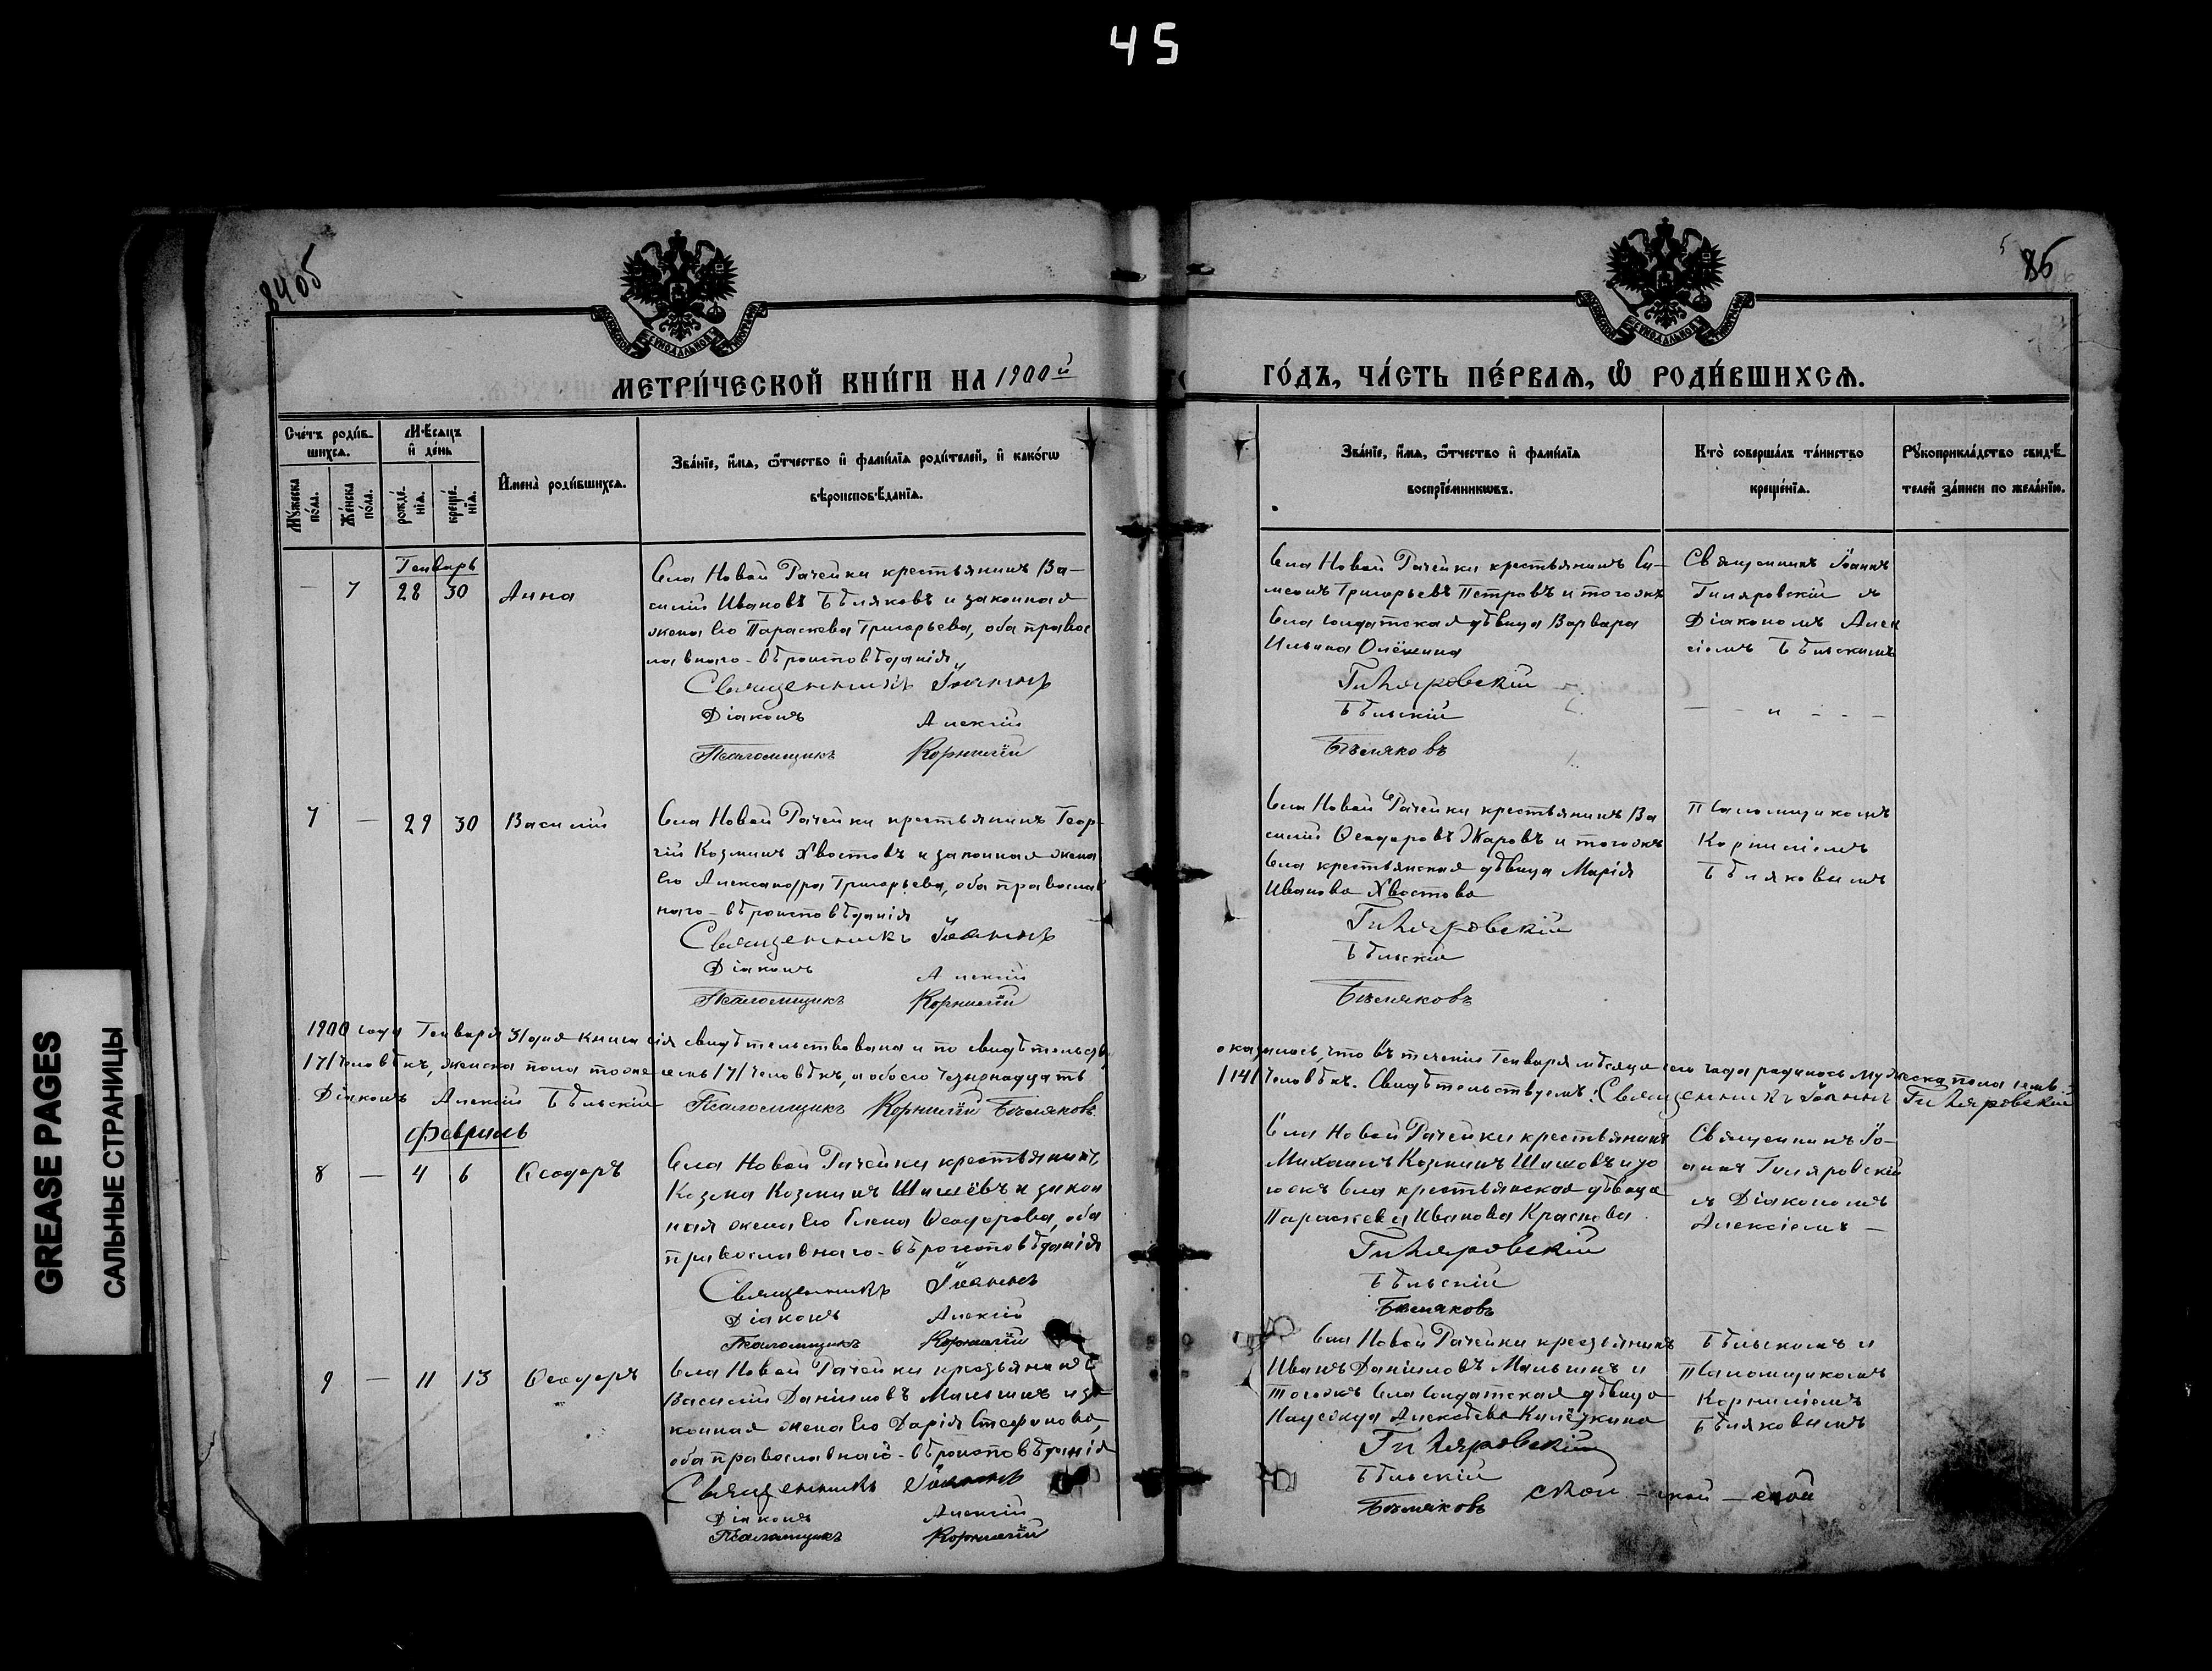 45
8405
86
МЕТРИ́ЧЕСКОЙ КНИ́ГИ НА 1900й
ГО́ДЪ, ЧА́СТЬ ПЕ́РВАѦ, Ѽ РОДИ́ВШИХСѦ.
Сче́тъ роди́в-
шихсѧ.
Мꙋ́жеска по́ла.
Же́нска по́ла.
Мѣ́сѧцъ и҆ де́нь
рожде́нїѧ.
креще́нїѧ.
И҆мена̀ роди́вшихсѧ.
Зва́нїе, и҆́мѧ, ѻ҆́тчество и҆ фами́лїѧ роди́телей, и҆ како́гѡ
вѣроисповѣ́данїѧ.
Зва́нїе, и҆́мѧ, ѻ҆́тчество и҆ фами́лїѧ
воспрїе́мникѡвъ.
Кто̀ соверша́лъ та́инство
креще́нїѧ.
Рꙋкоприкла́дство свидѣ́-
телей за́писи по жела́нїю.
Генварь
— 7 28 30 Анна
Села Новой Рачейки крестьянинъ Ва-
силій Ивановъ Бѣляковъ и законная
жена Его Параскева Григорьева, оба правос
лавнаго-вѣроисповѣданія
Священникъ Іоаннъ
Діаконъ Алексій
Псаломщикъ Корнилій
Села Новой Рачейки крестьянинъ Си-
меонъ Григорьевъ Петровъ и тогожъ
Села солдатская дѣвица Варвара
Ильина
Гиляровскій
Бѣльскій
Бѣляковъ
Священникъ Іоаннъ
Гиляровскій съ
Діакономъ Алек
сіемъ Бѣльскимъ
— - „ - - —
7 — 29 30 Василій
Села Новой Рачейки крестьянинъ Геор-
гій Козминъ Хвостовъ и законная жена
Его Александра Григорьева, оба православ
наго-вѣроисповѣданія
Священникъ Іоаннъ
Діаконъ Алексій
Псаломщикъ Корнилій
Села Новой Рачейки крестьянинъ Ва
силій Ѳеодоровъ Жаровъ и тогожъ
Села крестьянская дѣвица Марія
Иванова Хвостова
Гиляровскій
Бѣльскій
Бѣляковъ
Псаломщикомъ
Корниліемъ
Бѣляковымъ
1900 года Генваря 31 дня книга сія свидѣтельствована и по свидѣтельству
оказалось, что въ теченіи Генваря мѣсяца сего года родилось мужеска пола семь
/7/ человѣкъ, женска пола тоже семь /7/ человѣкъ, а обоего четырнадцать
/14/ человѣкъ. Свидѣтельствуемъ: Священникъ Іоаннъ Гиляровскій
Діаконъ Алексій Бѣльскій Псаломщикъ Корнилій Бѣляковъ
Февраль
8 — 4 6 Ѳеодоръ
Села Новой Рачейки крестьянинъ,
Козма Козминъ Шишовъ и закон
ная жена Его Елена Ѳеодорова, оба
православнаго-вѣроисповѣданія
Священникъ Іоаннъ
Діаконъ Алексій
Псаломщикъ Корнилій
Села Новой Рачейки крестьянинъ
Михаилъ Козминъ Шишовъ и то
гожъ Села крестьянская дѣвица
Параскева Иванова Краснова
Гиляровскій
Бѣльскій
Бѣляковъ
Священникъ Іо-
аннъ Гиляровскій
съ Діакономъ
Алексіемъ —
9 — 11 13 Ѳеодоръ
Села Новой Рачейки крестьянинъ
Василій Даніиловъ Малышъ и за-
конная жена Его Дарія Стефанова,
оба православнаго-вѣроисповѣданія
Священникъ Іоаннъ
Діаконъ Алексій
Псаломщикъ Корнилій
Села Новой Рачейки крестьянинъ
Иванъ Даніиловъ Малышъ и
тогожъ Села солдатская дѣвица
Надежда Алексѣева
Гиляровскій
Бѣльскій
Бѣляковъ
Бѣльскимъ и
Псаломщикомъ
Корниліемъ
Бѣляковымъ
GREASE PAGES
САЛЬНЫЕ СТРАНИЦЫ